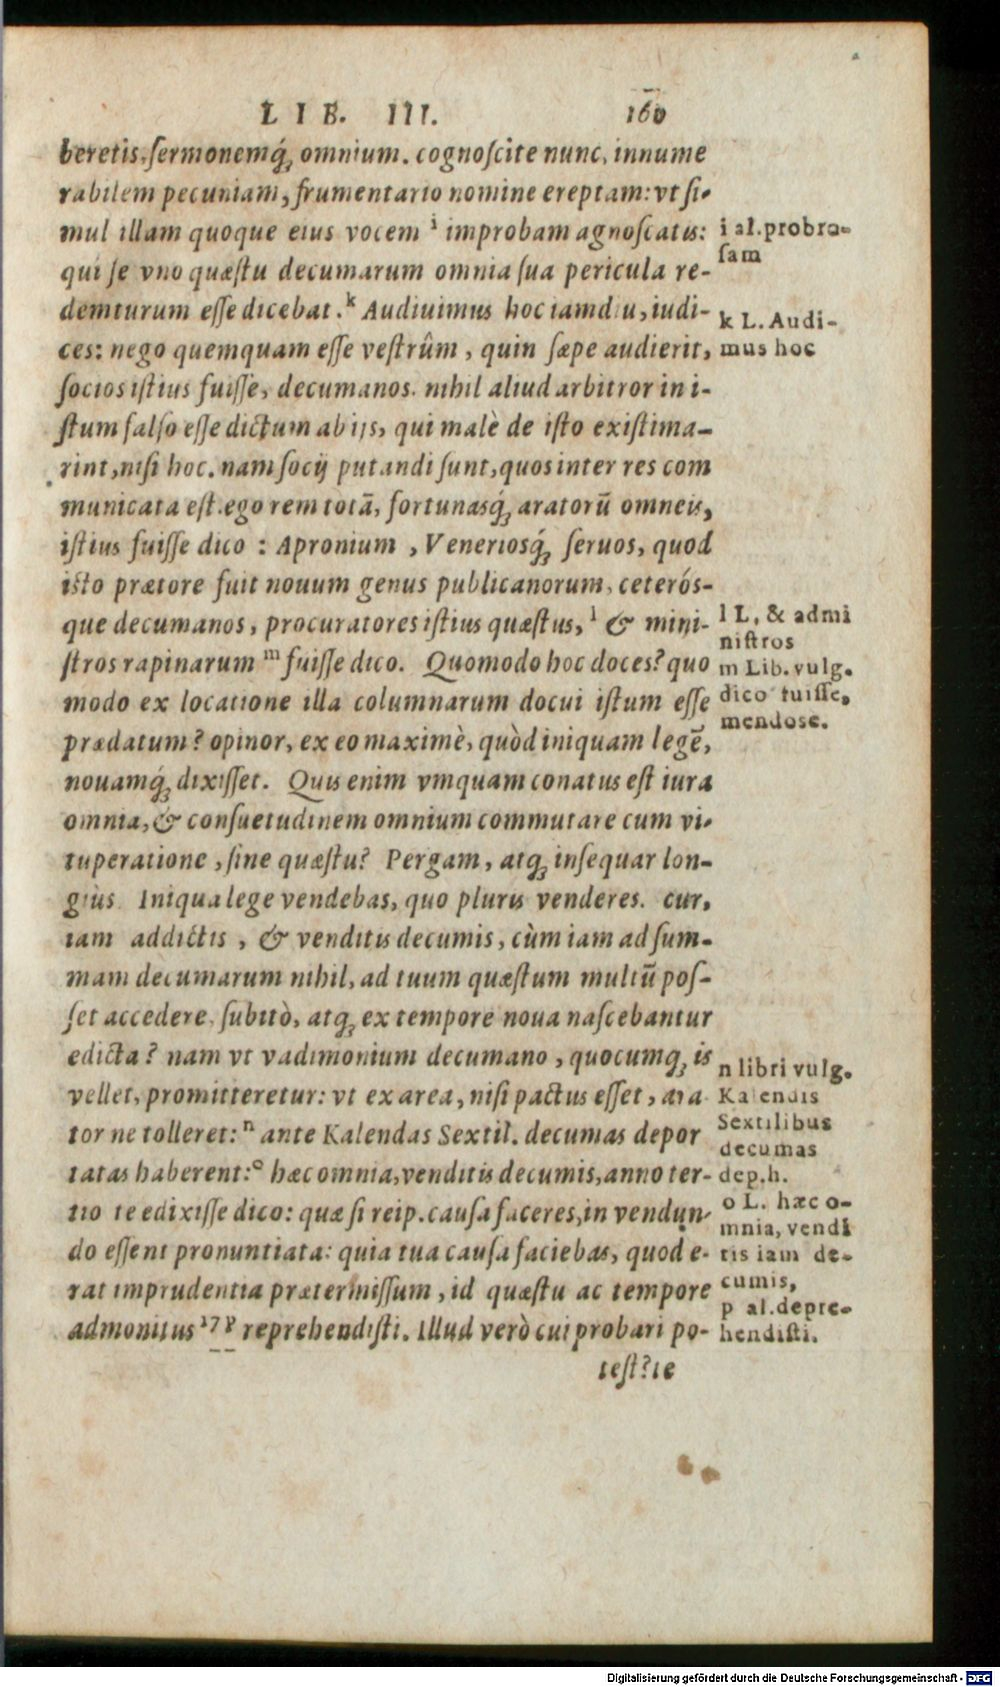 LIB. III. 160
beretis, ſermonemq́ꝫ omnium. cognoſcite nunc, innume
rabilem pecuniam, frumentario nomine ereptam: vt ſi-
mul illam quoque eius vocem i improbam agnoſcatis:
qui ſe vno quæſtu decumarum omnia ſua pericula re-
demturum eſſe dicebat. k Audiuimus hoc iamdiu, iudi-
ces: nego quemquam eſſe veſtrûm, quin ſæpe audierit,
ſocios iſtius fuiſſe, decumanos. nihil aliud arbitror in i-
ſtum falſo eſſe dictum ab ijs, qui malè de iſto exiſtima-
rint, niſi hoc. nam ſocij putandi ſunt, quos inter res com
municata eſt. ego rem totã, fortunasq́ꝫ aratorũ omneis,
iſtius fuiſſe dico: Apronium, Veneriosq́ꝫ ſeruos, quod
iſto prætore fuit nouum genus publicanorum, ceterós-
que decumanos, procuratores iſtius quæſtus, l & mini-
ſtros rapinarum m fuiſſe dico. Quomodo hoc doces? quo
modo ex locatione illa columnarum docui iſtum eſſe
prædatum? opinor, ex eo maximè, quòd iniquam legẽ,
nouamq́ꝫ dixiſſet. Quis enim vmquam conatus eſt iura
omnia, & conſuetudinem omnium commutare cum vi-
tuperatione, ſine quæſtu? Pergam, atqꝫ inſequar lon-
giùs. Iniqua lege vendebas, quo pluris venderes. cur,
iam addictis, & venditis decumis, cùm iam ad ſum-
mam decumarum nihil, ad tuum quæſtum multũ poſ-
ſet accedere, ſubitò, atqꝫ ex tempore noua naſcebantur
edicta? nam vt vadimonium decumano, quocumqꝫ is
vellet, promitteretur: vt ex area, niſi pactus eſſet, ara
tor ne tolleret: n ante Kalendas Sextil. decumas depor
tatas haberent: o hæc omnia, venditis decumis, anno ter-
tio te edixiſſe dico: quæ ſi reip. cauſa faceres, in vendun-
do eſſent pronuntiata: quia tua cauſa faciebas, quod e-
rat imprudentia prætermiſſum, id quæſtu ac tempore
admonitus 17 p reprehendiſti. Illud verò cui probari po-
teſt? te
i al. probro-
ſam
k L. Audi-
mus hoc
l L. & admi
niſtros
m Lib. vulg.
dico fuiſſe,
mendose.
n libri vulg.
Kalendis
Sextilibus
decumas
dep. h.
o L. hæc o-
mnia, vendi
tis iam de-
cumis,
p al. depre-
hendiſti.
Digitalisierung gefördert durch die Deutsche Forschungsgemeinschaft - DFG